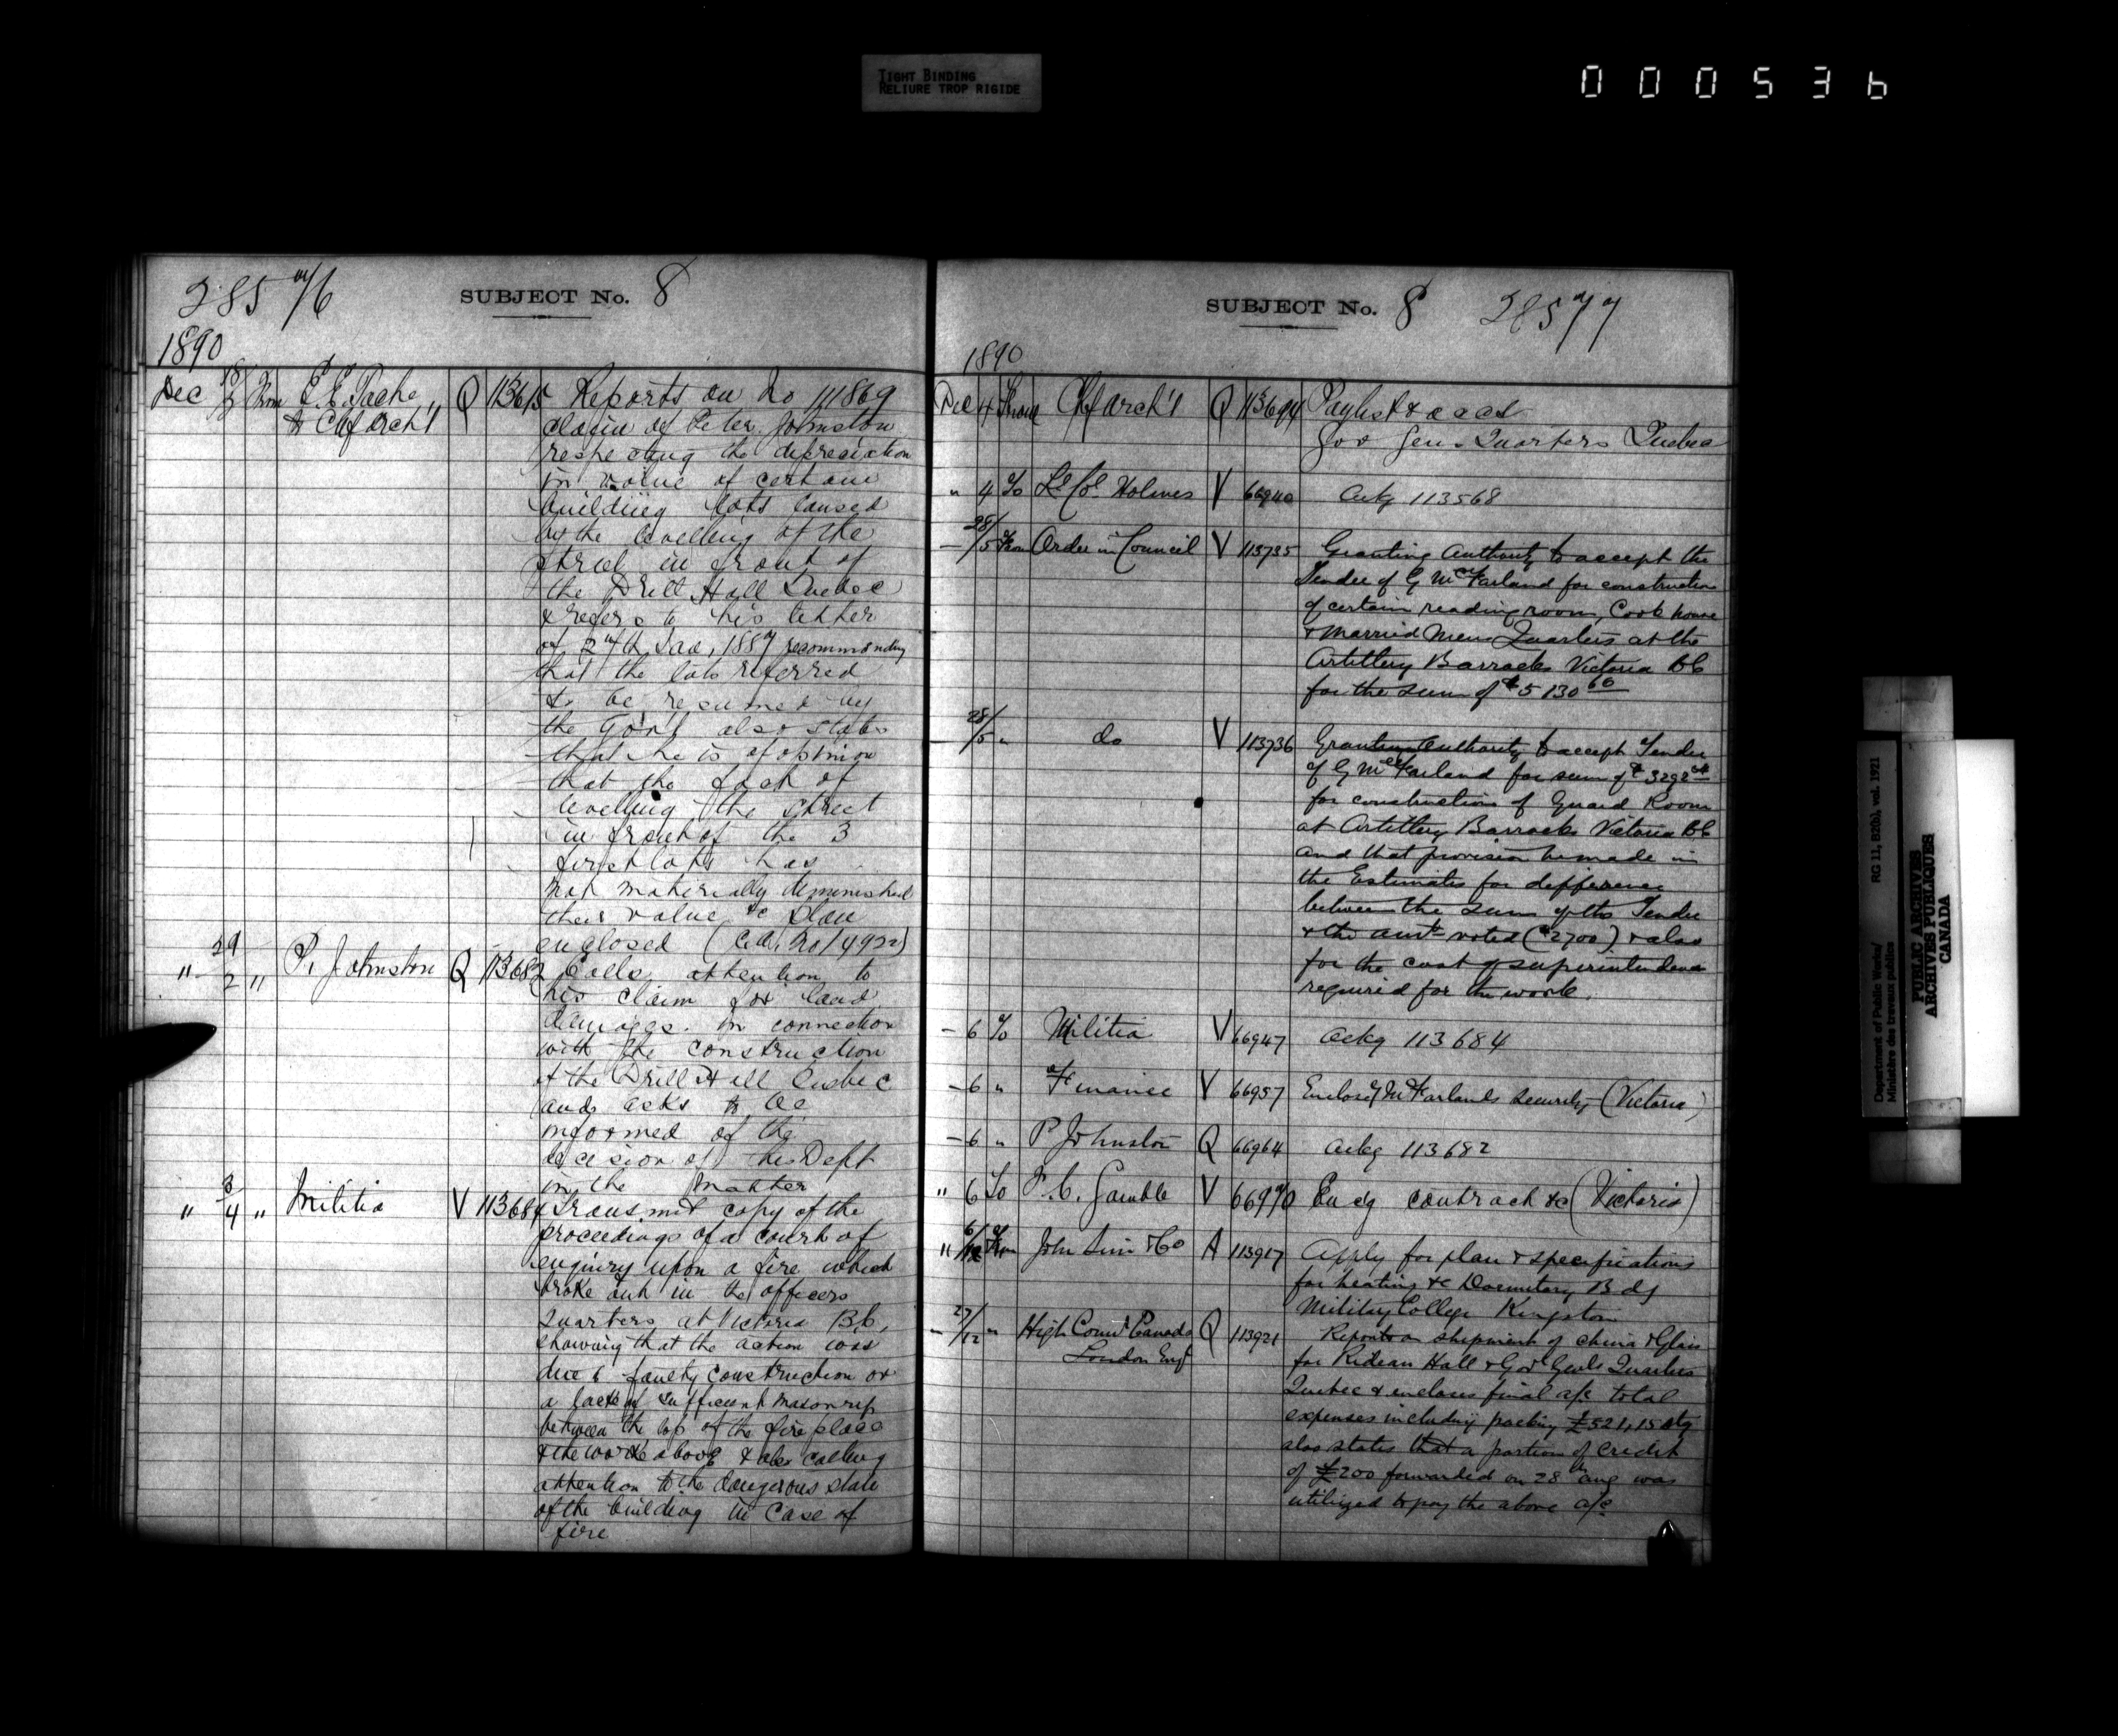 TIGHT BINDING
RELIURE TROP RIGIDE
000536
SUBJECT No. 8
1890
Dec 18/2 From E. E. Tache, & Chf Arch't Q 113615 Reports on No 111869
claim of Peter Johnston
respecting the depreciation
in value of certain
building lots caused
by the levelling of the
street in front of
the Drill Hall Quebec
& refers to his letter
of 27th Jan, 1887 recommending
that the lots referred
to be resumed by
the Gov't also states
that he is of opinion
that the fact of
levelling the street
in front of the 3
first lots has
not materially diminished
their value &c Plan
enclosed (C.A. No 14922)
" 29/2 " P. Johnston Q 113682 Calls attention to
his claim for land
damages in connection
with the construction
of the Drill Hall Quebec
and asks to be
informed of the
decision of the Dept
in the matter
" 3/4 " Militia V 113684 Transmit copy of the
proceedings of a court of
enquiry upon a fire which
broke out in the officers
Quarters at Victoria B.C,
showing that the action was
due to faulty construction or
a lack of sufficient masonry
between the top of the fire place
& the work above & also calling
attention to the dangerous state
of the building in case of
fire
SUBJECT No. 8
1890
Dec 4 From Chf Arch't Q 113694 Paylist & accts
Gov Gen. Quarters Quebec
" 4 To Lt Col Holmes V 66940 Ackg 113568
28/5 From Order in Council V 113735 Granting Authority to accept the
Tender of G McFarland for construction
of certain reading room, Cook house
& Married Mens Quarters at the
Artillery Barracks Victoria BC
for the sum of $5130
28/5 " do V 113736 Granting authority to accept Tender
of G McFarland for sum of $3292
for construction of Guard Room
at Artillery Barracks Victoria BC
and that provision be made in
the Estimates for difference
between the sum of this Tender
& the amt voted ($2700) & also
for the cost of superintendence
required for the work.
- 6 To Militia V 66947 Ackg 113684
- 6 " Finance V 66957 Enclosg McFarlands Security (Victoria)
- 6 " P Johnston Q 66964 Ackg 113682
" 6 To F. C. Gamble V 66970 Encg contract &c (Victoria)
" 6/12 From John & Co A 113917 Apply for plan & specifications
for heating &c Dormitory Bdg
Military College Kingston
27/12 " High Comr Canada Q 113921 Reports on shipment of china & Glass
London Engd for Rideau Hall & Gov Genls Quarters
Quebec & encloses final a/c total
expenses including packing £521,15 stg
also states that a portion of credit
of £200 forwarded on 28th Aug was
utilized to pay the above a/c.
Department of Public Works/
Ministère des travaux publics
RG 11, B2(b), vol. 1921
PUBLIC ARCHIVES
ARCHIVES PUBLIQUES
CANADA